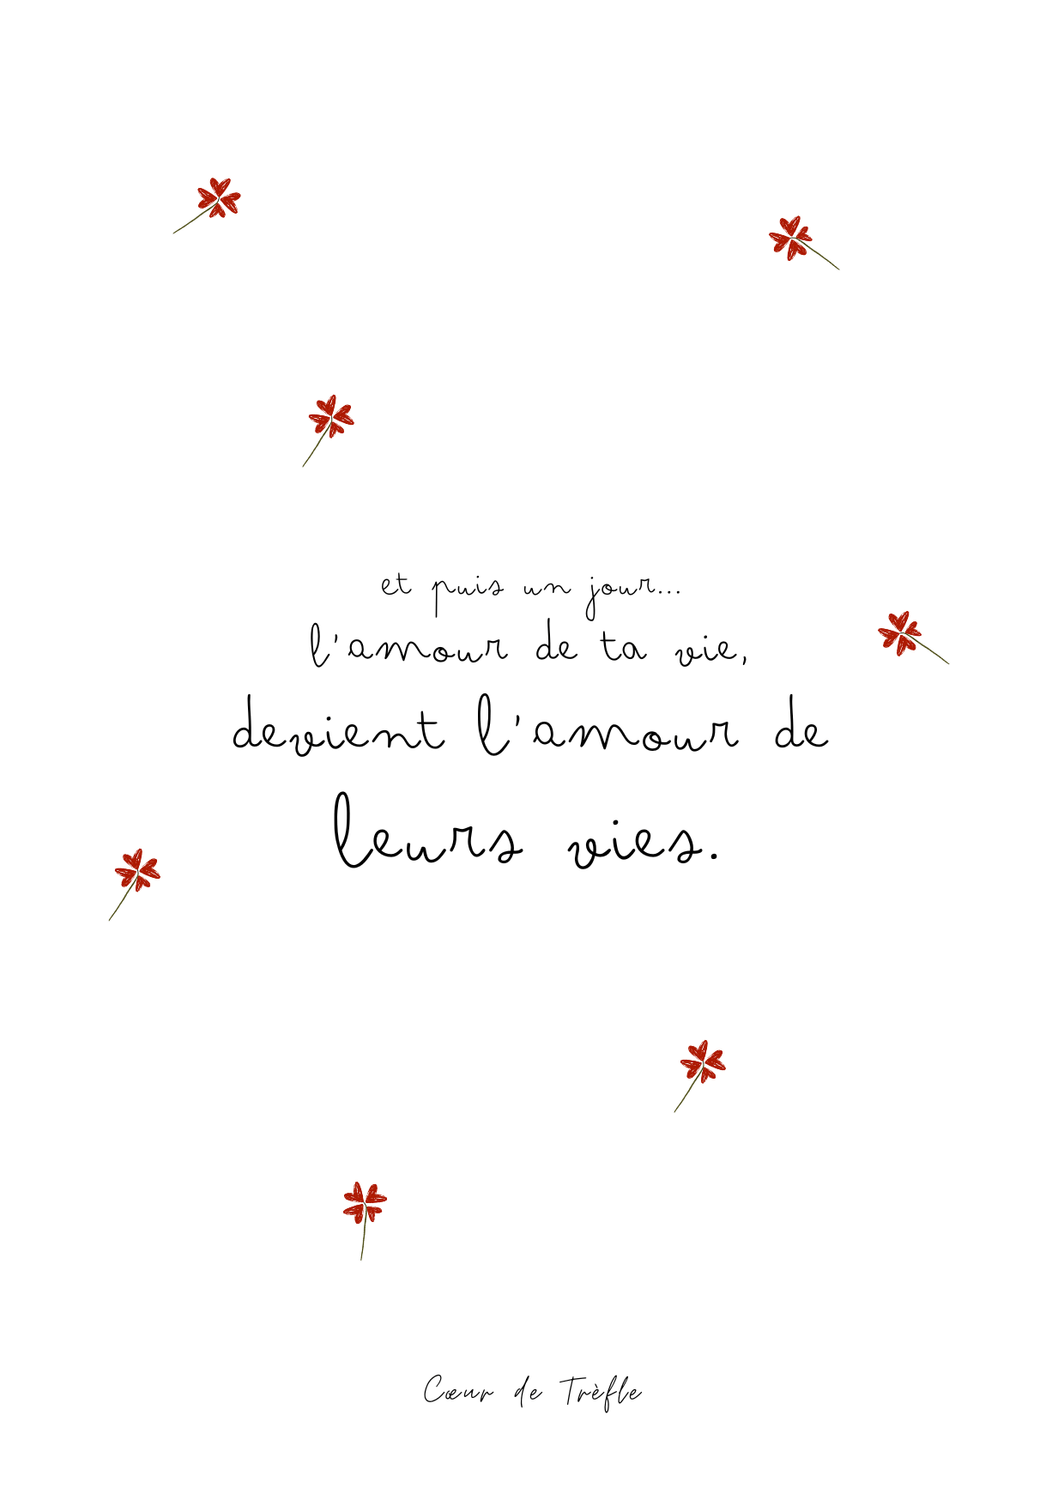 et puis un jour...
l'amour de ta vie,
devient l'amour de
leurs vies.
Cœur de Trèfle